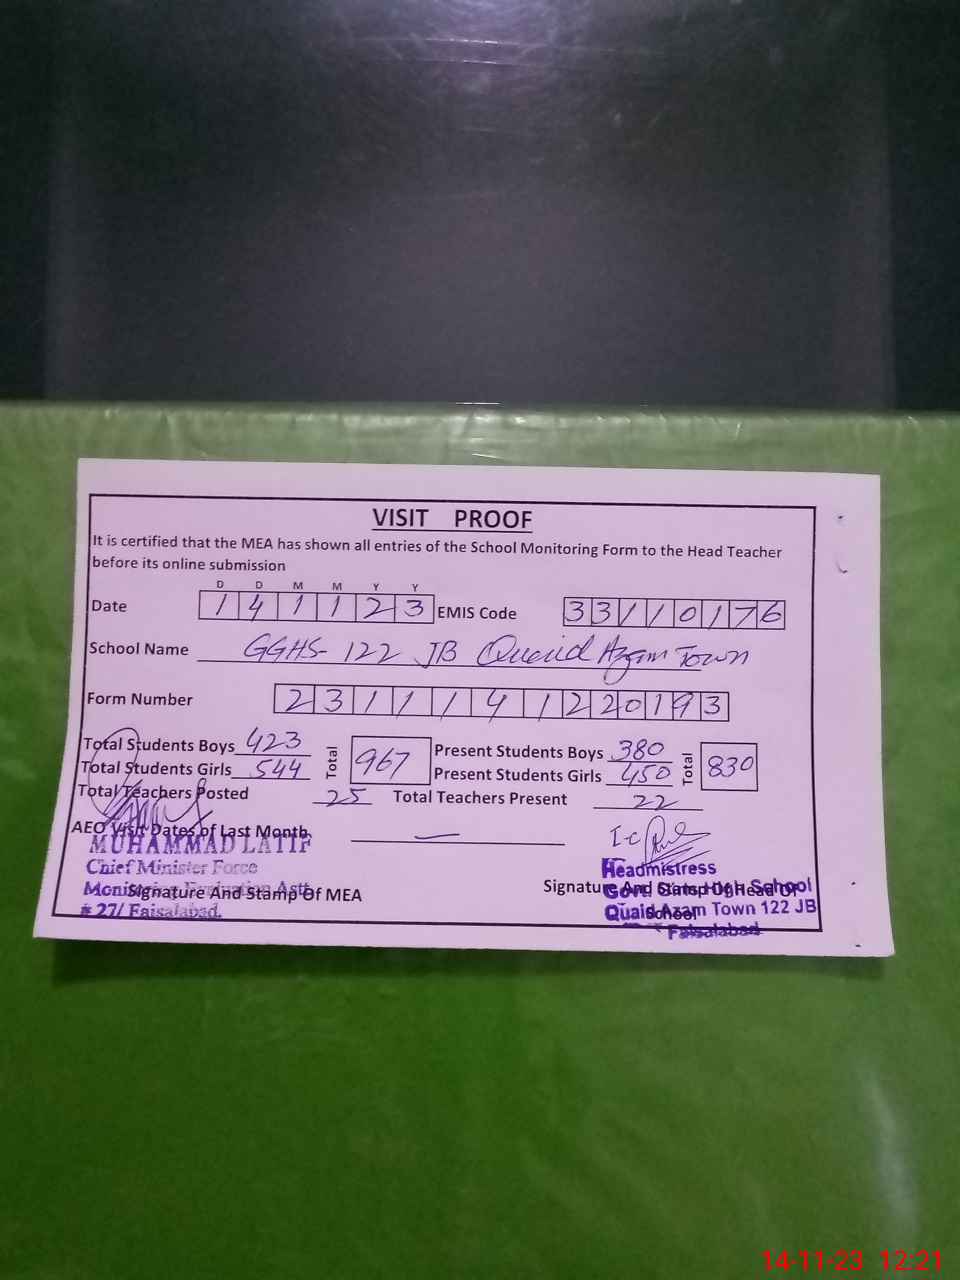 VISIT PROOF
It is certified that the MEA has shown all entries of the School Monitoring Form to the Head Teacher
before its online submission
D D M M Y Y
Date 1 4 1 1 2 3 EMIS Code 3 3 1 1 0 1 7 6
School Name GGHS- 122 JB Quaid Azam Town
Form Number 2 3 1 1 1 4 1 2 2 0 1 9 3
Total Students Boys 423 Total 967 Present Students Boys 380 Total 830
Total Students Girls 544 Present Students Girls 450
Total Teachers Posted 25 Total Teachers Present 22
AEO Visit Dates of Last Month —
MUHAMMAD LATIF
Chief Minister Force
Monitoring Evaluation Astt
# 27/ Faisalabad.
Signature And Stamp Of MEA
I-c
Headmistress
Govt. Girls High School
Quaid Azam Town 122 JB
Faisalabad
Signature And Stamp Of Head Of
School
14-11-23 12:21